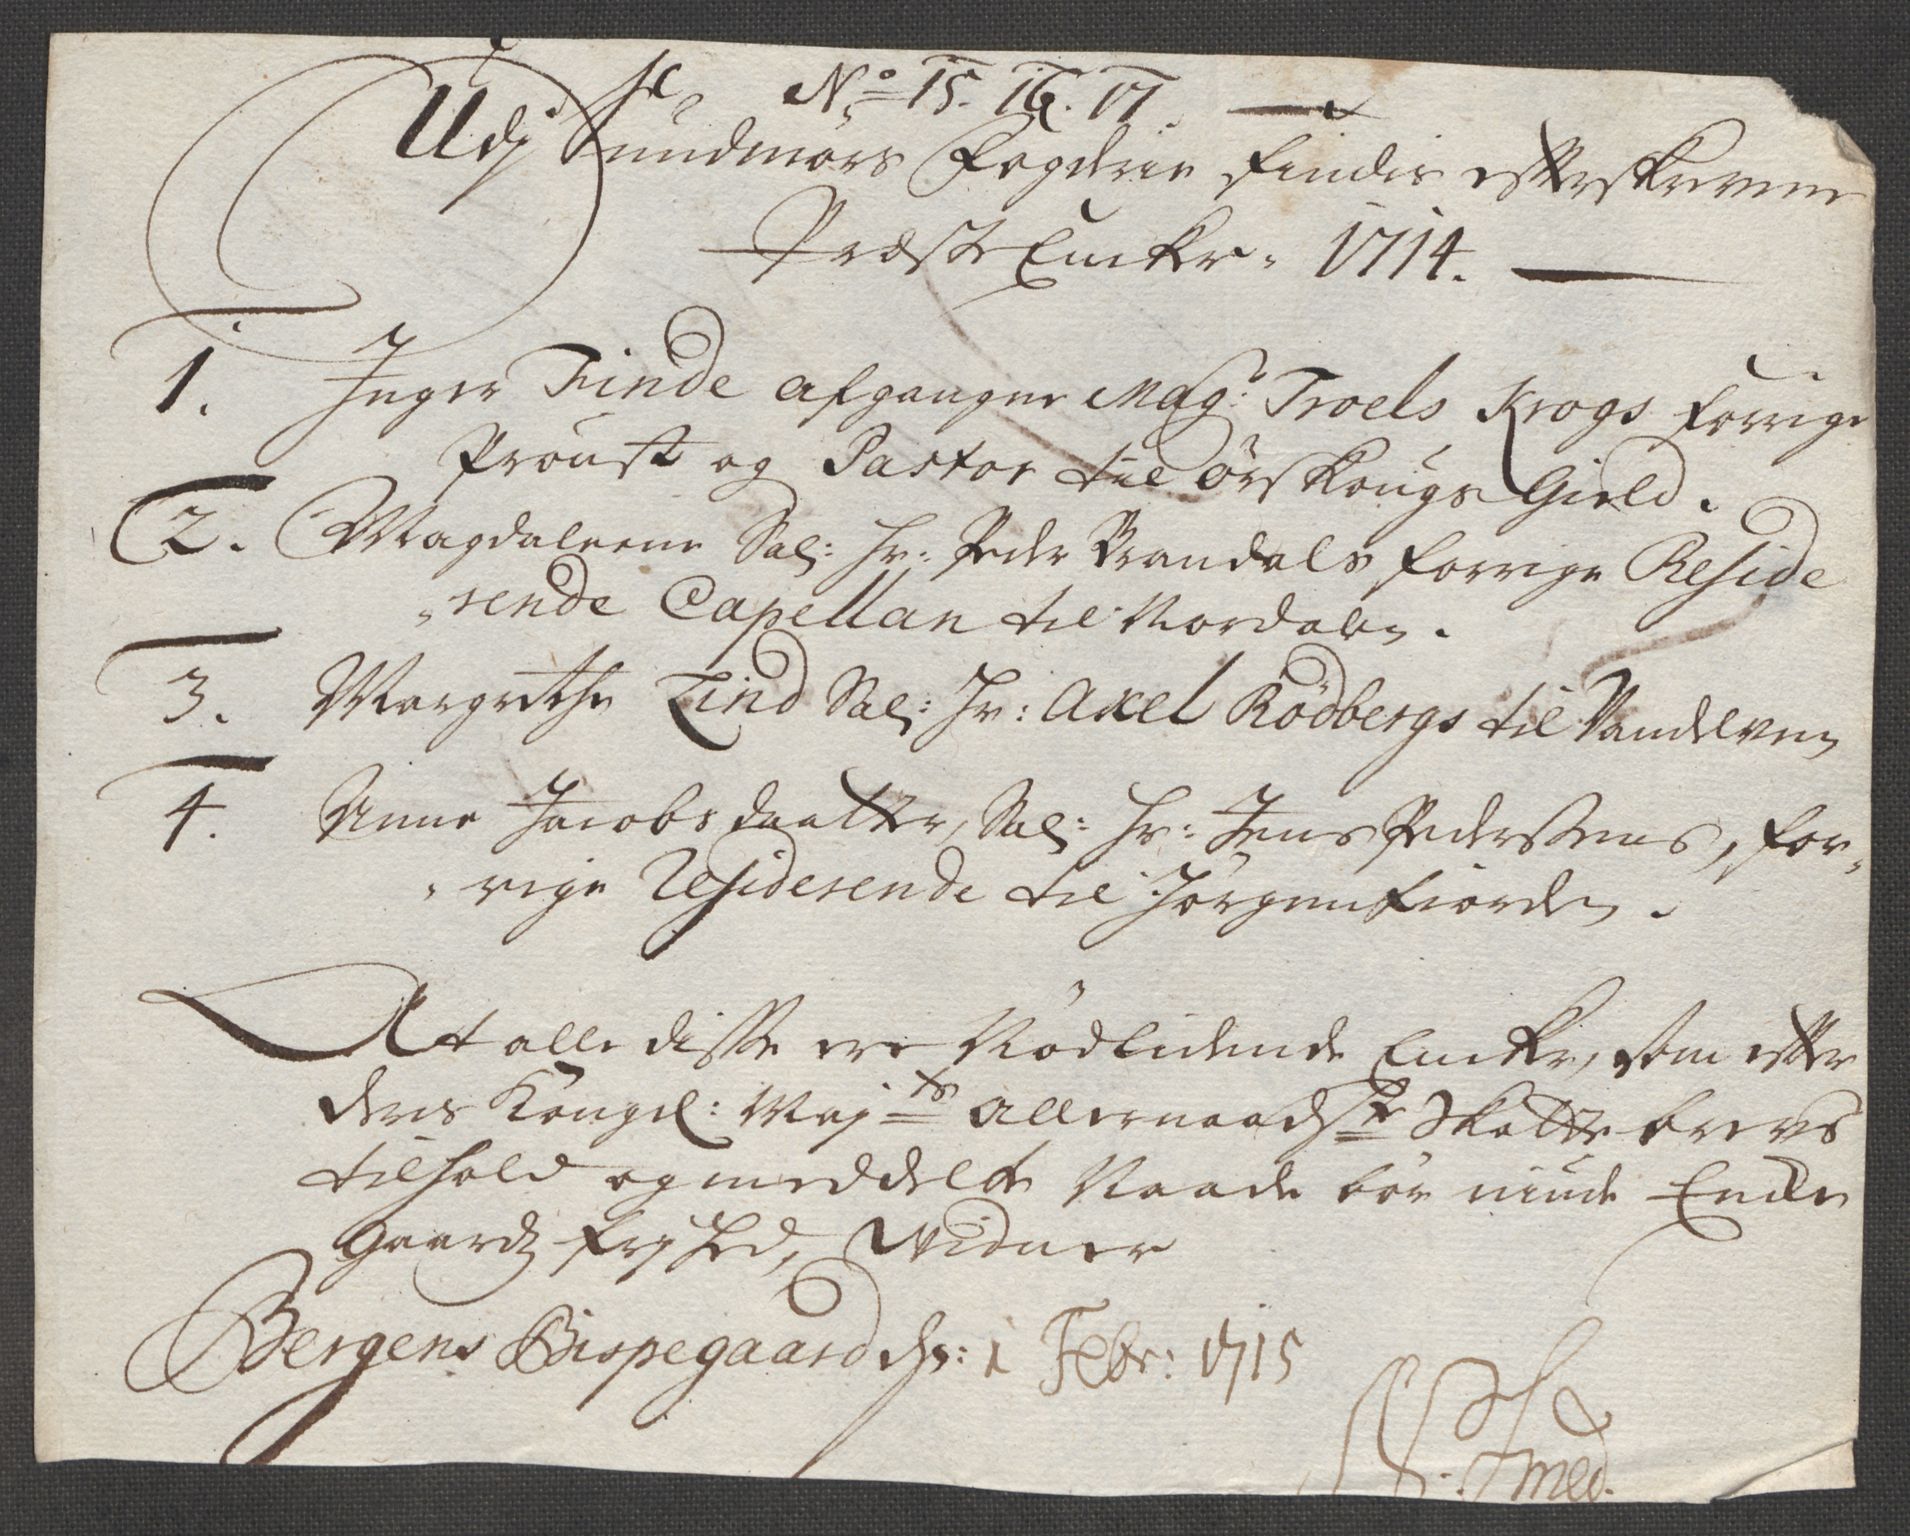 No 15. 16. 17.
Udj Sundmørs Fogderie findis efterskrevne
Præste Enker. 1714.
1. Inger Finde afgangne Mag: Troels Krogs forrige
Proust og Pastor til Ørskougs Gield.
2. Magdaleene Sal: Hr: Peder Brandals forrige Reside
rende Capellan til Nordalen.
3. Margrethe Lind Sal: Hr: Axel Rödbergs til Vandelven
4. Anne Jacobsdaatter, Sal: Hr: Jens Pederssens, for-
rige Residerende til Jørgenfiorden.
At alle disse ere Nödlidende Enker, som efter
deris Kongel: Mayts Allernaadste Skatte brevs
tilhold og meddelte Naade bör niude Enke
Gaards fryhed, Widner
Bergens Bispegaard d: 1 Febr: 1715